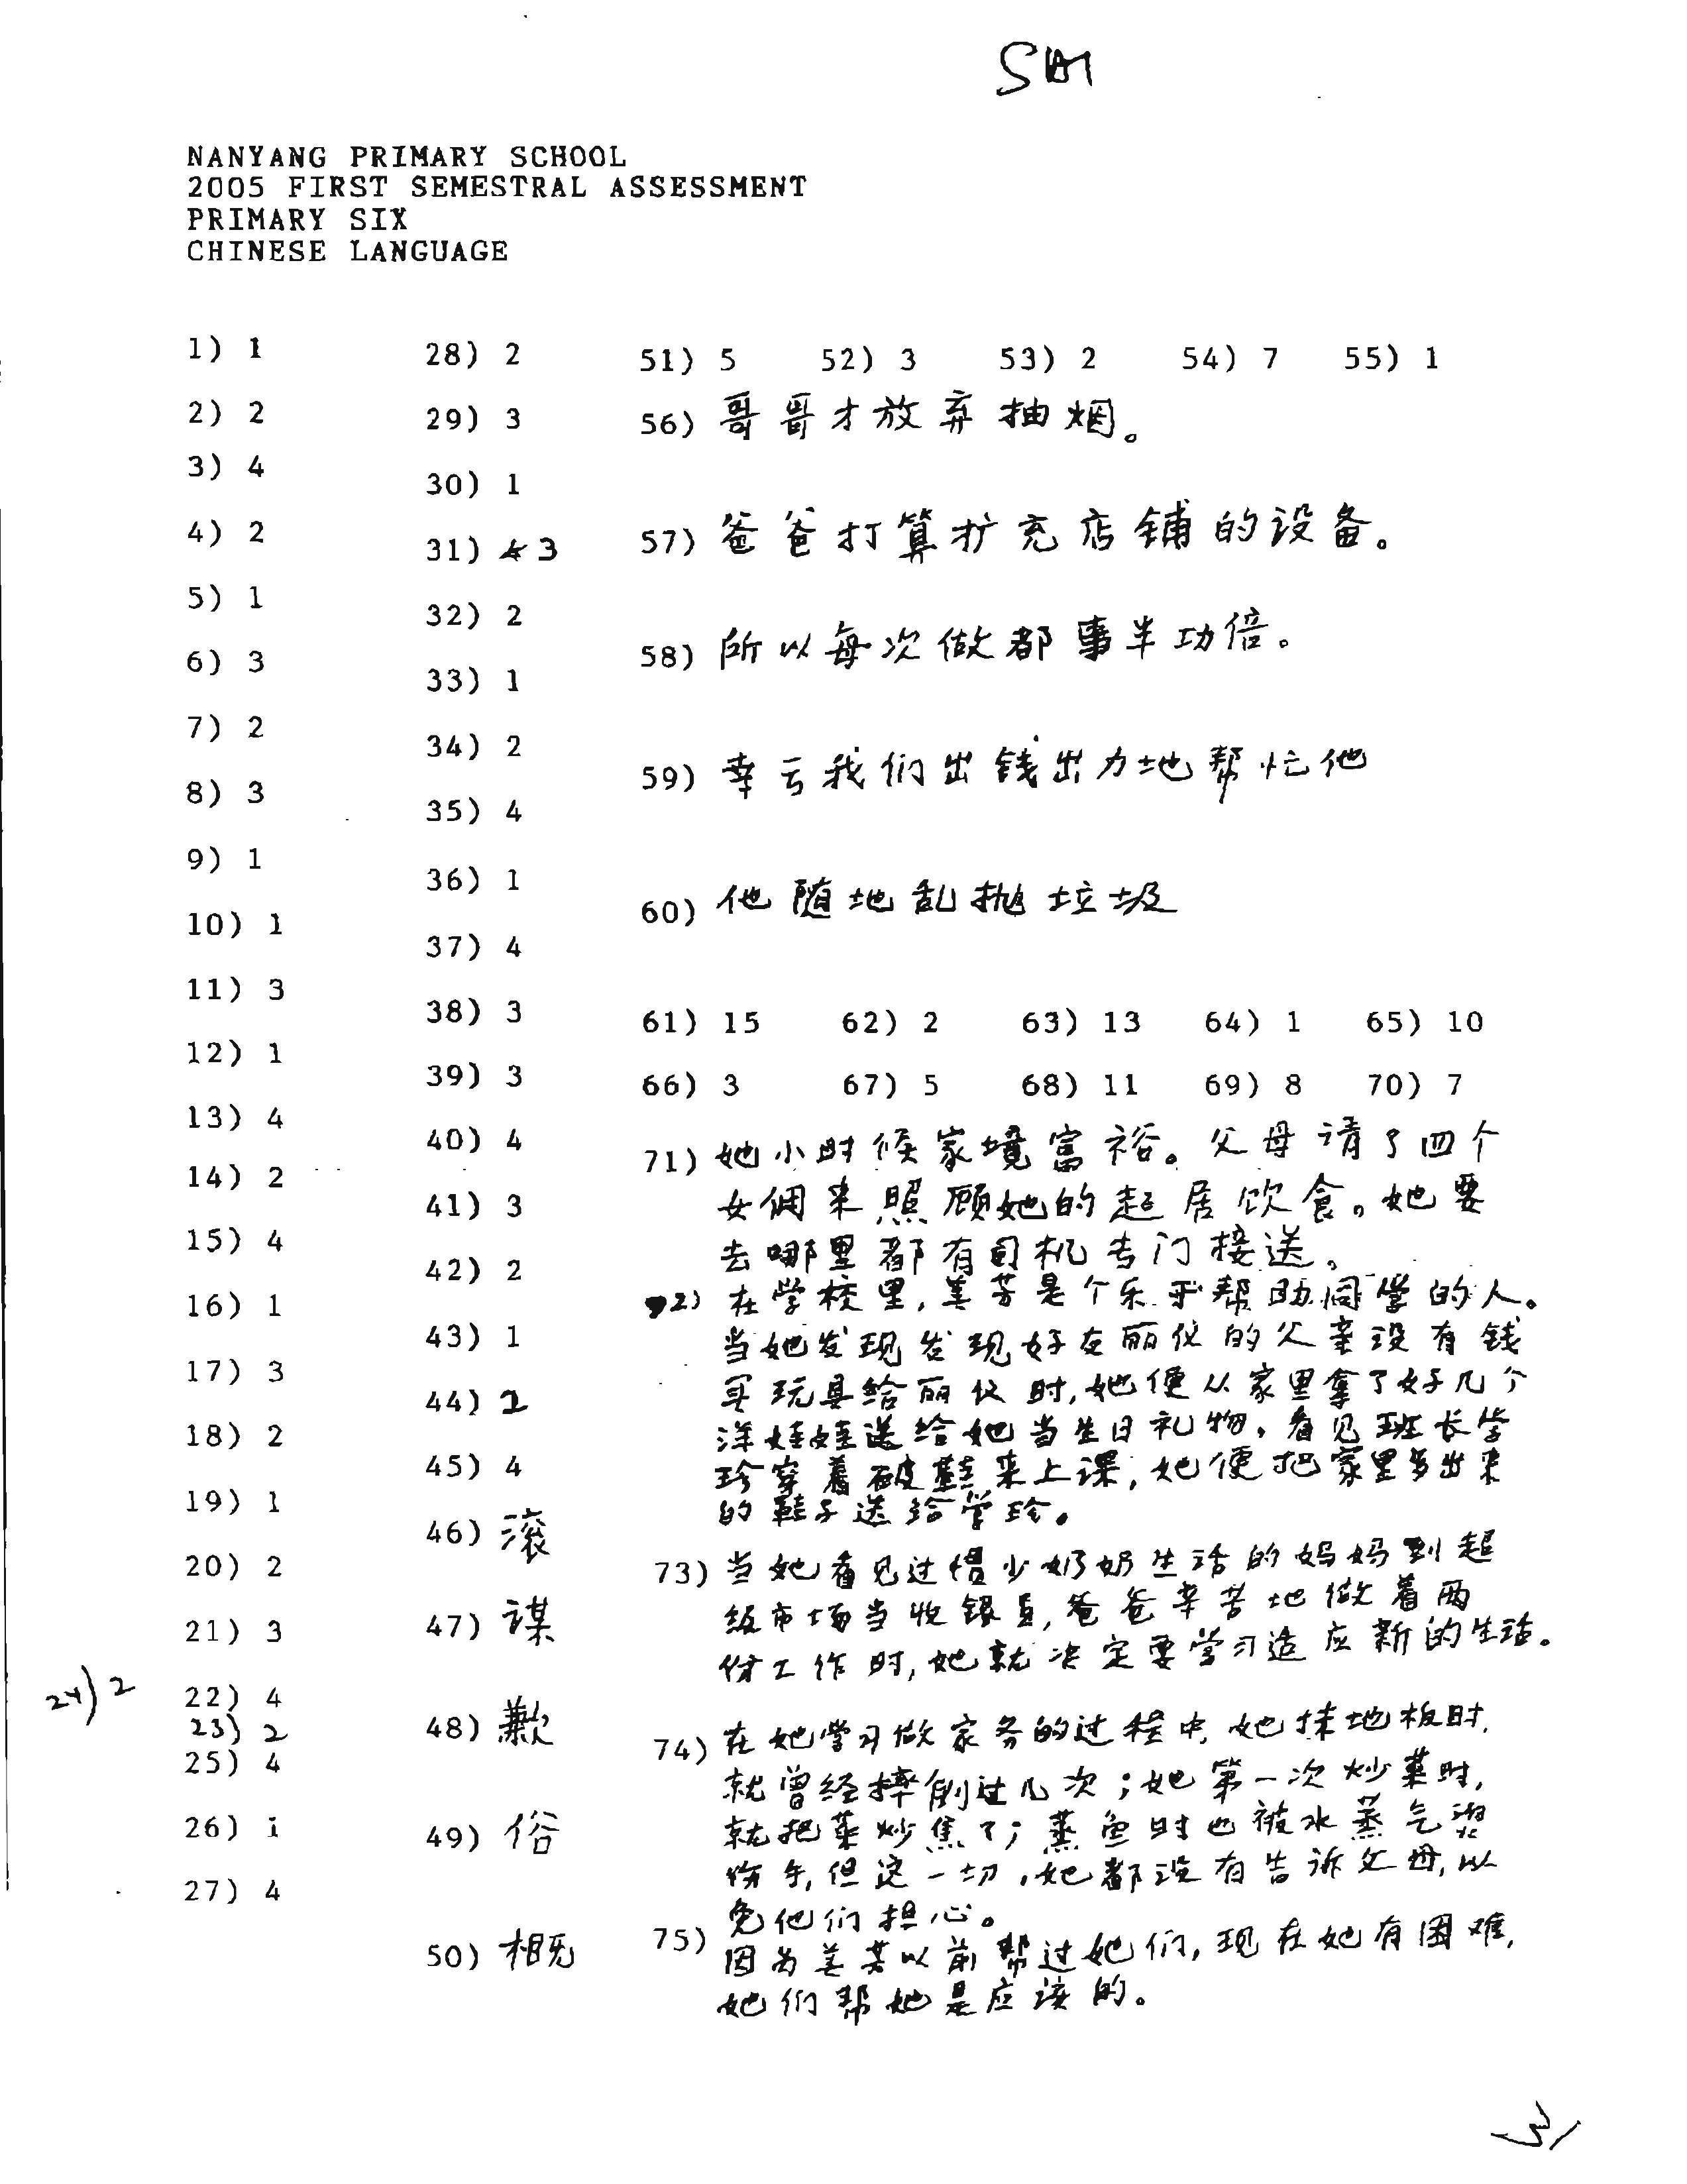 SA1
NANYANG PRIMARY SCHOOL
2005 FIRST SEMESTRAL ASSESSMENT
PRIMARY SIX
CHINESE LANGUAGE
1) 1
2) 2
3) 4
4) 2
5) 1
6) 3
7) 2
8) 3
9) 1
10) 1
11) 3
12) 1
13) 4
14) 2
15) 4
16) 1
17) 3
18) 2
19) 1
20) 2
21) 3
22) 4
23) 2
24) 2
25) 4
26) 1
27) 4
28) 2
29) 3
30) 1
31) 3
32) 2
33) 1
34) 2
35) 4
36) 1
37) 4
38) 3
39) 3
40) 4
41) 3
42) 2
43) 1
44) 2
45) 4
46) 滚
47) 谋
48) 歉
49) 俗
50)
51) 5 52) 3 53) 2 54) 7 55) 1
56) 哥哥才放弃抽烟。
57) 爸爸打算扩充店铺的设备。
58) 所以每次做都事半功倍。
59) 幸亏我们出钱出力地帮忙他
60) 他随地乱抛垃圾
61) 15 62) 2 63) 13 64) 1 65) 10
66) 3 67) 5 68) 11 69) 8 70) 7
71) 她小时候家境富裕。父母请了四个
女佣来照顾她的起居饮食。她要
去哪里都有司机专门接送。
72) 在学校里,美芳是个乐于帮助同学的人。
当她发现发现好友丽仪的父亲没有钱
买玩具给丽仪时,她便从家里拿了好几个
洋娃娃送给她当生日礼物。看见班长学
珍穿着破鞋来上课,她便把家里多出来
的鞋子送给学珍。
73) 当她看见过惯少奶奶生活的妈妈到超
级市场当收银员,爸爸辛苦地做着两
份工作时,她就决定要学习适应新的生活。
74) 在她学习做家务的过程中,她抹地板时,
就曾经摔倒过几次;她第一次炒菜时,
就把菜炒焦了;蒸鱼时也被水蒸气烫
伤手,但这一切,她都没有告诉父母,以
免他们担心。
75) 因为美芳以前帮过她们,现在她有困难,
她们帮她是应该的。